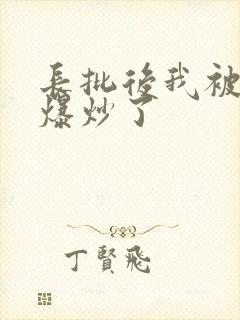 長批後我被
爆炒了
丁賢飛